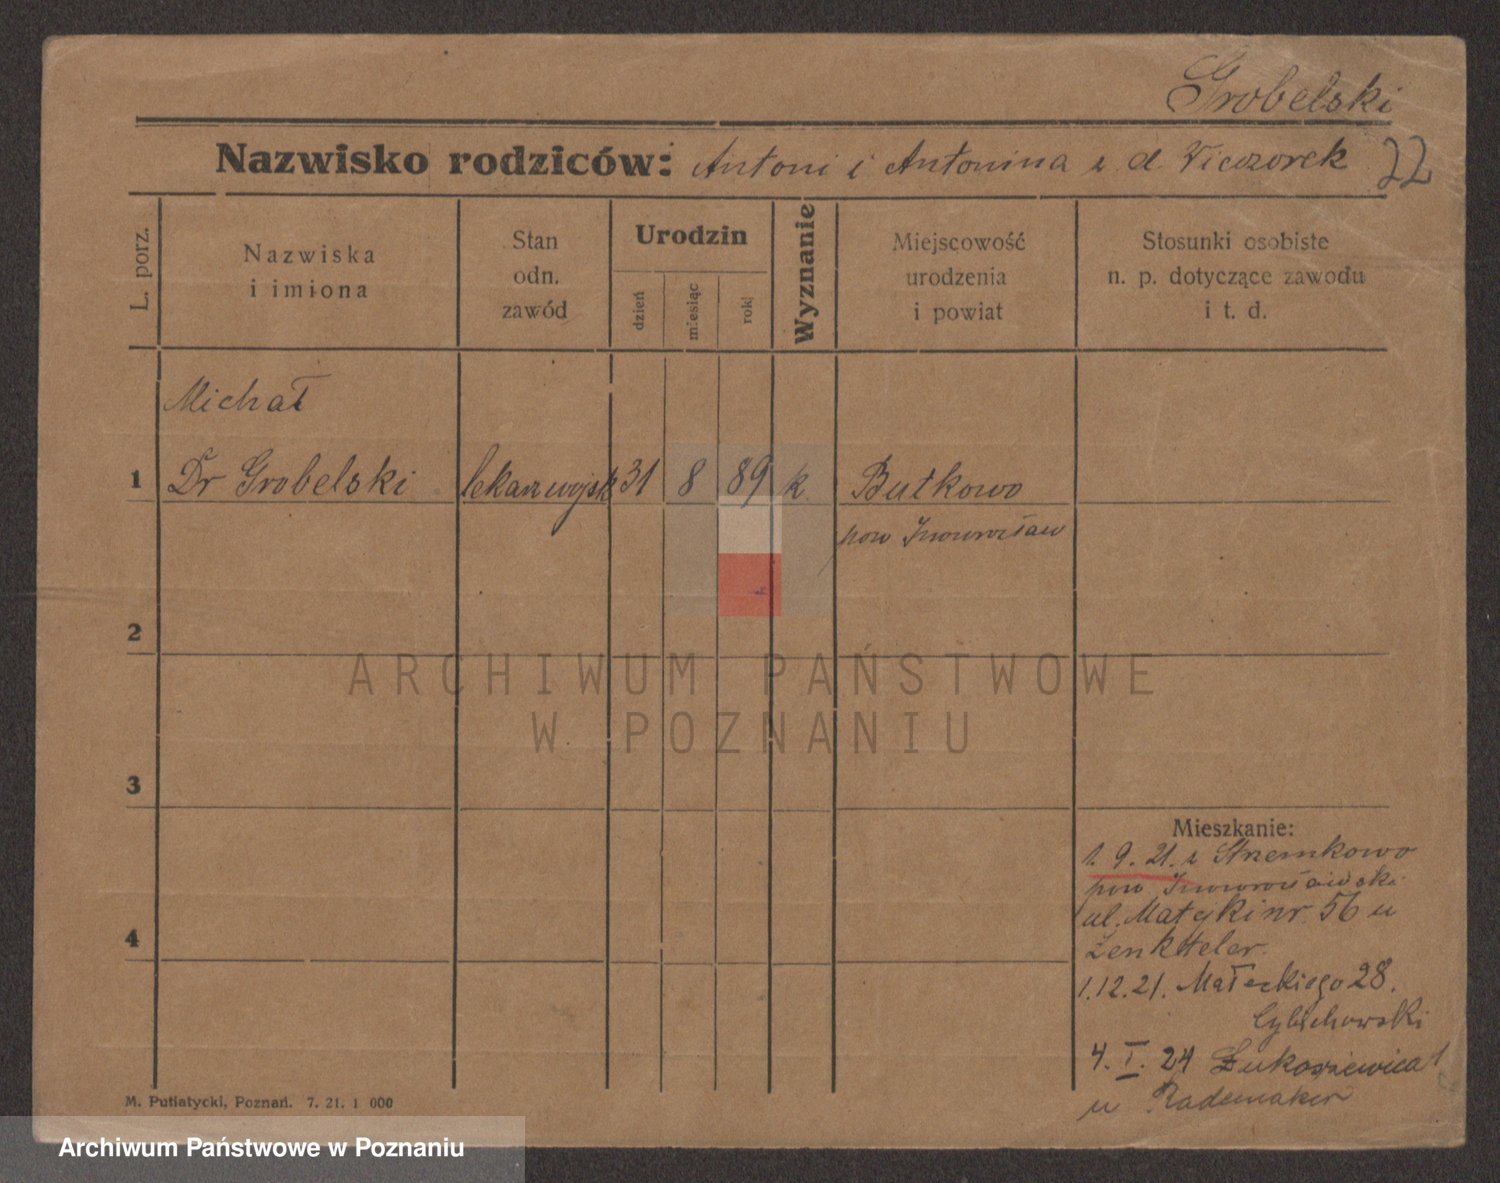 Grobelski
Nazwisko rodziców: Antoni i Antonina z d. Wieczorek 22
L. porz.
Nazwiska
i imiona
Stan
odn.
zawód
Urodzin
dzień
miesiąc
rok
Wyznanie
Miejscowość
urodzenia
i powiat
Stosunki osobiste
n. p. dotyczące zawodu
i t. d.
Michał
1 Dr Grobelski lekarz wojsk 31 8 89 k Butkowo
pow Inowrocław
2
3
Mieszkanie:
1. 9. 21. z
pow Inowrocławski
ul. Matejki nr. 56 u
4
1.12.21. Małeckiego 28.
Cybichowski
4. I. 24 Łukaszewicza 1
u Rademaker
M. Putiatycki, Poznań. 7. 21. 1 000
ARCHIWUM PAŃSTWOWE
W POZNANIU
Archiwum Państwowe w Poznaniu